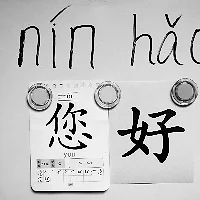 nín hǎo
您 好
you